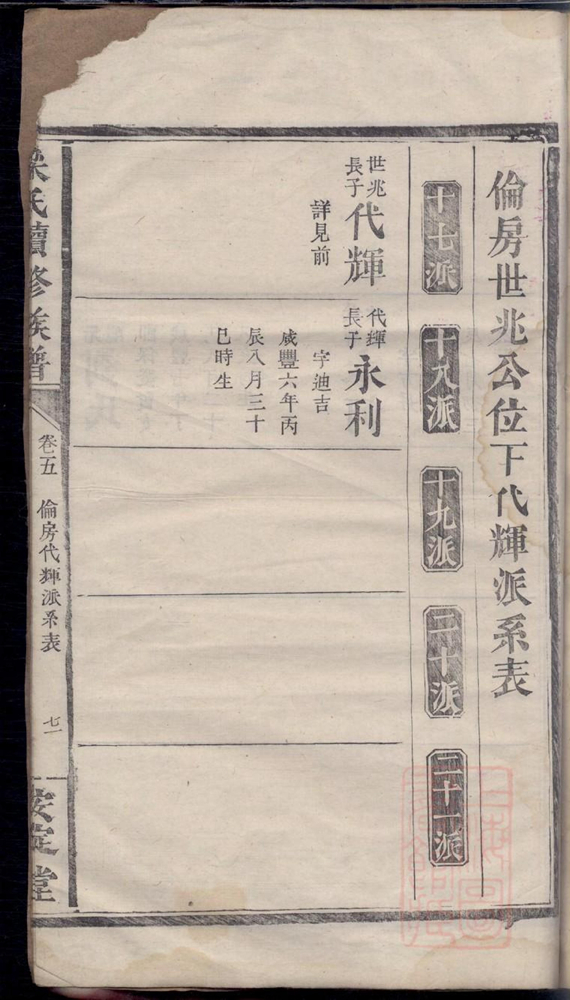 倫房世兆公位下代輝派系表
十七派
十八派
十九派
二十派
二十一派
世兆
長子
代輝
詳見前
代輝
長子
永利
字迪吉
咸豐六年丙
辰八月三十
巳時生
梁氏續修族譜
卷五
倫房代輝派系表
七一
安定堂